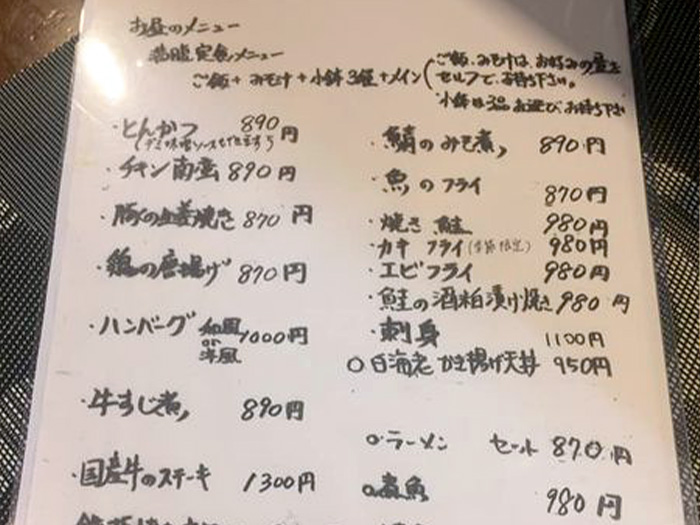 お昼のメニュー
満腹定食メニュー
ご飯+みそ汁+小鉢3種+メイン
ご飯、みそ汁は、お好みの量を
セルフで、お持ち下さい。
・小鉢は3品お選び、お持ち下さい
・とんかつ 890円
・チキン南蛮 890円
・豚の生姜焼き 870円
・鶏の唐揚げ 870円
・ハンバーグ 和風or洋風 1000円
・牛すじ煮、 890円
・国産牛のステーキ 1300円
・鯖のみそ煮、 890円
・魚のフライ 870円
・焼き鮭 980円
・カキフライ(季節限定) 980円
・エビフライ 980円
・鮭の酒粕漬け焼き 980円
・刺身 1100円
○白海老かき揚げ天丼 950円
○ラーメン セット 870円
○煮魚 980円